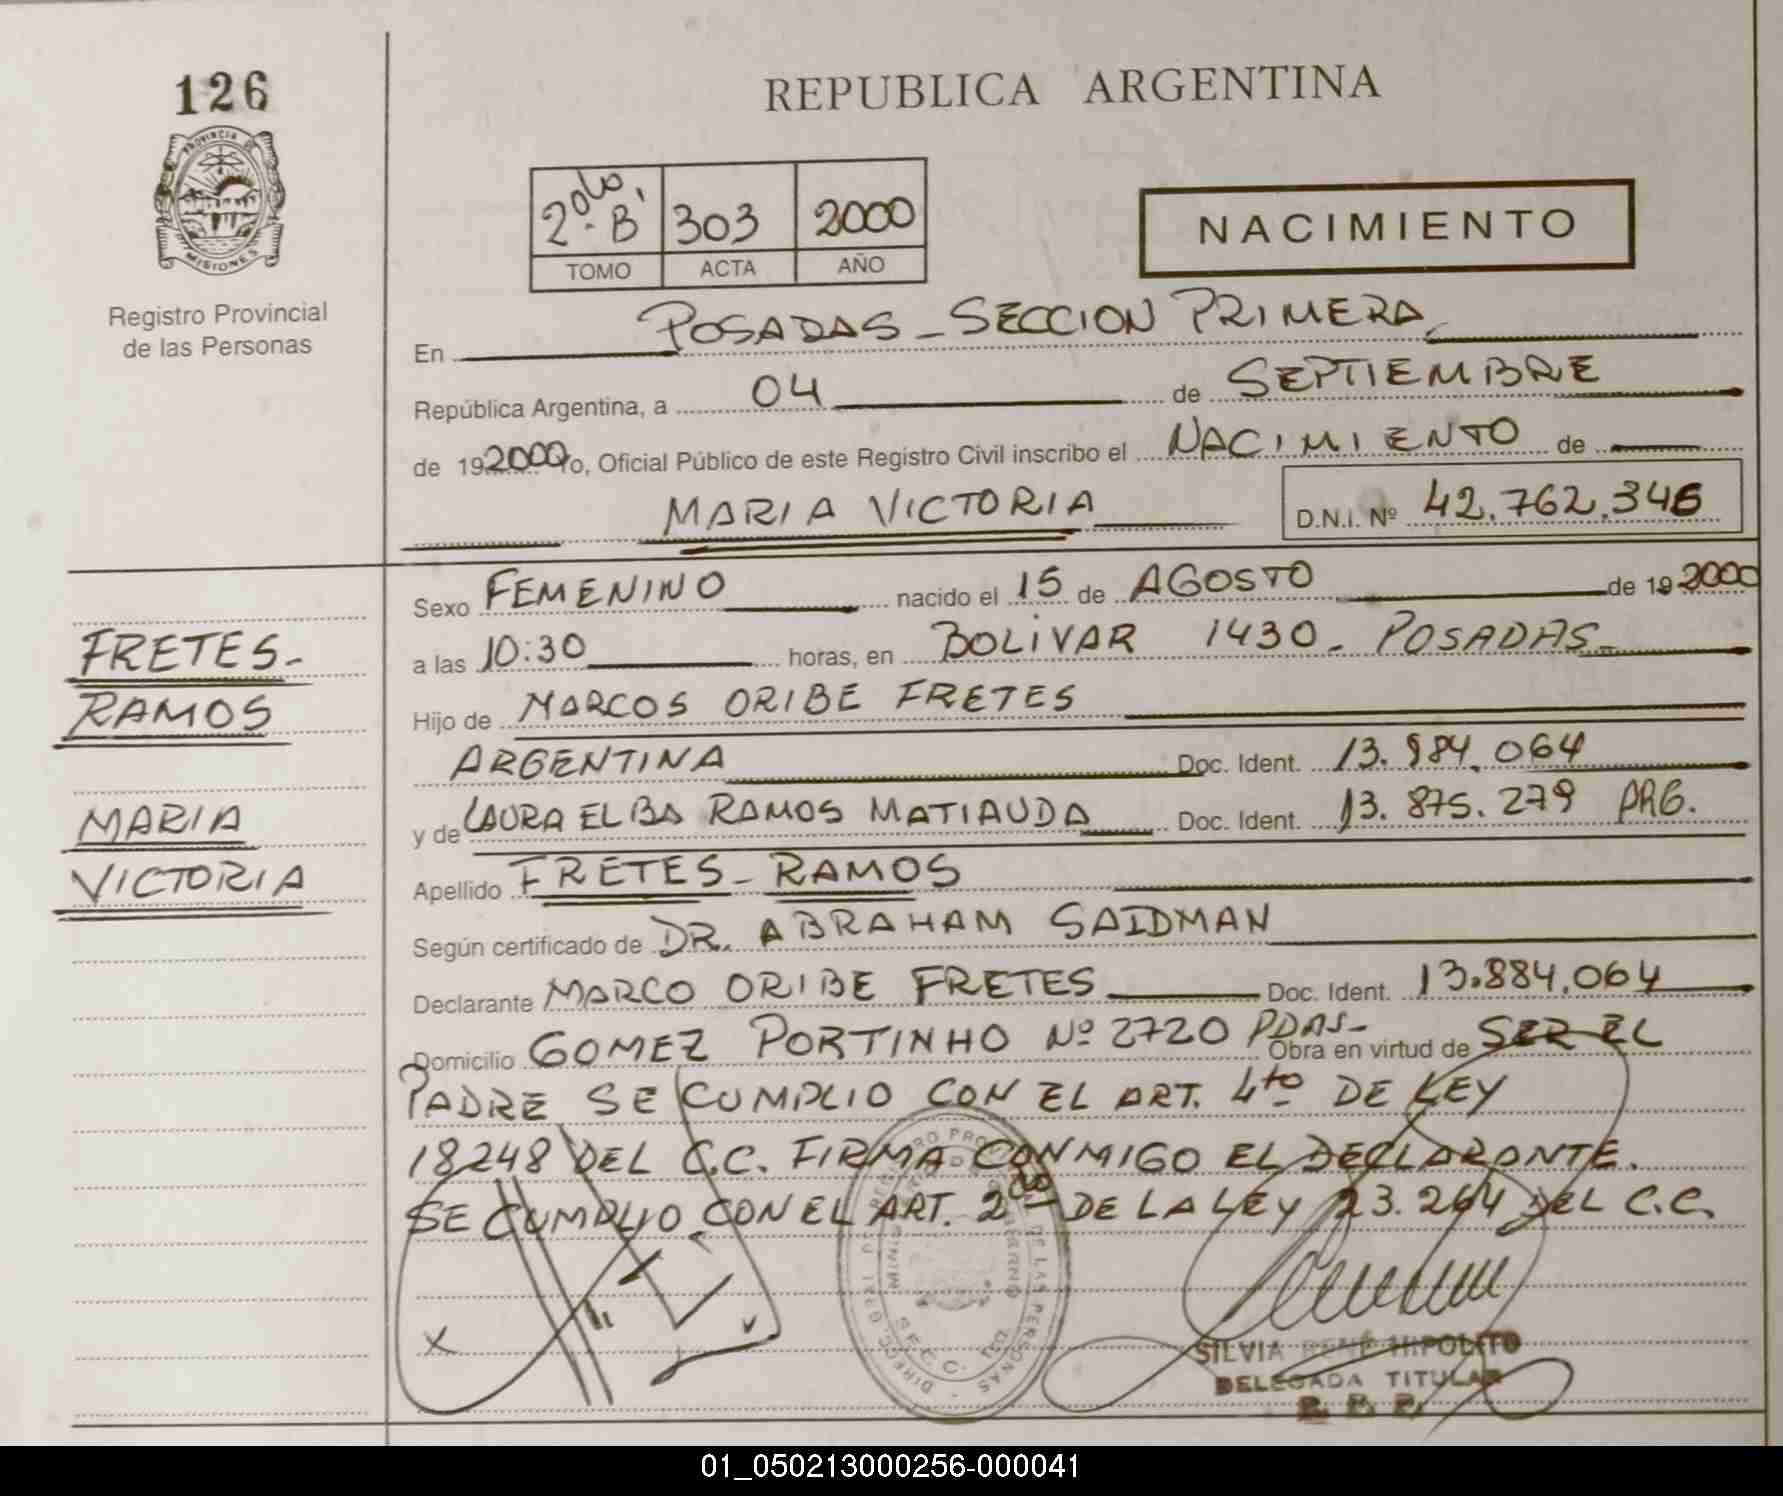 126
PROVINCIA DE
MISIONES
Registro Provincial
de las Personas
REPUBLICA ARGENTINA
2do "B" 303 2000
TOMO ACTA AÑO
NACIMIENTO
En POSADAS - SECCION PRIMERA
República Argentina, a 04 de SEPTIEMBRE
de 192000 Yo, Oficial Público de este Registro Civil inscribo el NACIMIENTO de
MARIA VICTORIA D.N.I. Nº 42.762.346
Sexo FEMENINO nacido el 15 de AGOSTO de 19 2000
a las 10:30 horas, en BOLIVAR 1430 - POSADAS -
Hijo de MARCOS ORIBE FRETES
ARGENTINA Doc. Ident. 13.884.064
y de LAURA ELBA RAMOS MATIAUDA Doc. Ident. 13.875.279 ARG.
Apellido FRETES - RAMOS
Según certificado de DR. ABRAHAM SAIDMAN
Declarante MARCO ORIBE FRETES Doc. Ident. 13.884.064
Domicilio GOMEZ PORTINHO Nº 2720 PDAS- Obra en virtud de SER EL
PADRE SE CUMPLIO CON EL ART. 4to DE LEY
18248 DEL C.C. FIRMA CONMIGO EL DECLARANTE.
SE CUMPLIO CON EL ART. 2do DE LA LEY 23.264 DEL C.C.
FRETES-
RAMOS
MARIA
VICTORIA
SILVIA RENÉ HIPOLITO
DELEGADA TITULAR
R. P. P.
01_050213000256-000041